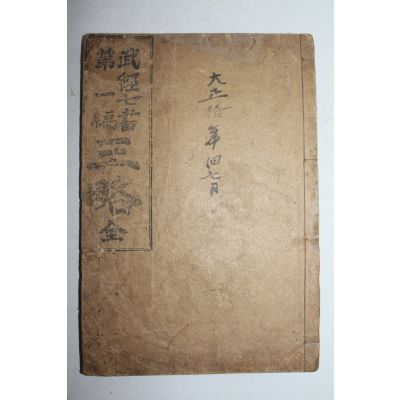 武經七書
第一編
三略全
大正拾年
七月